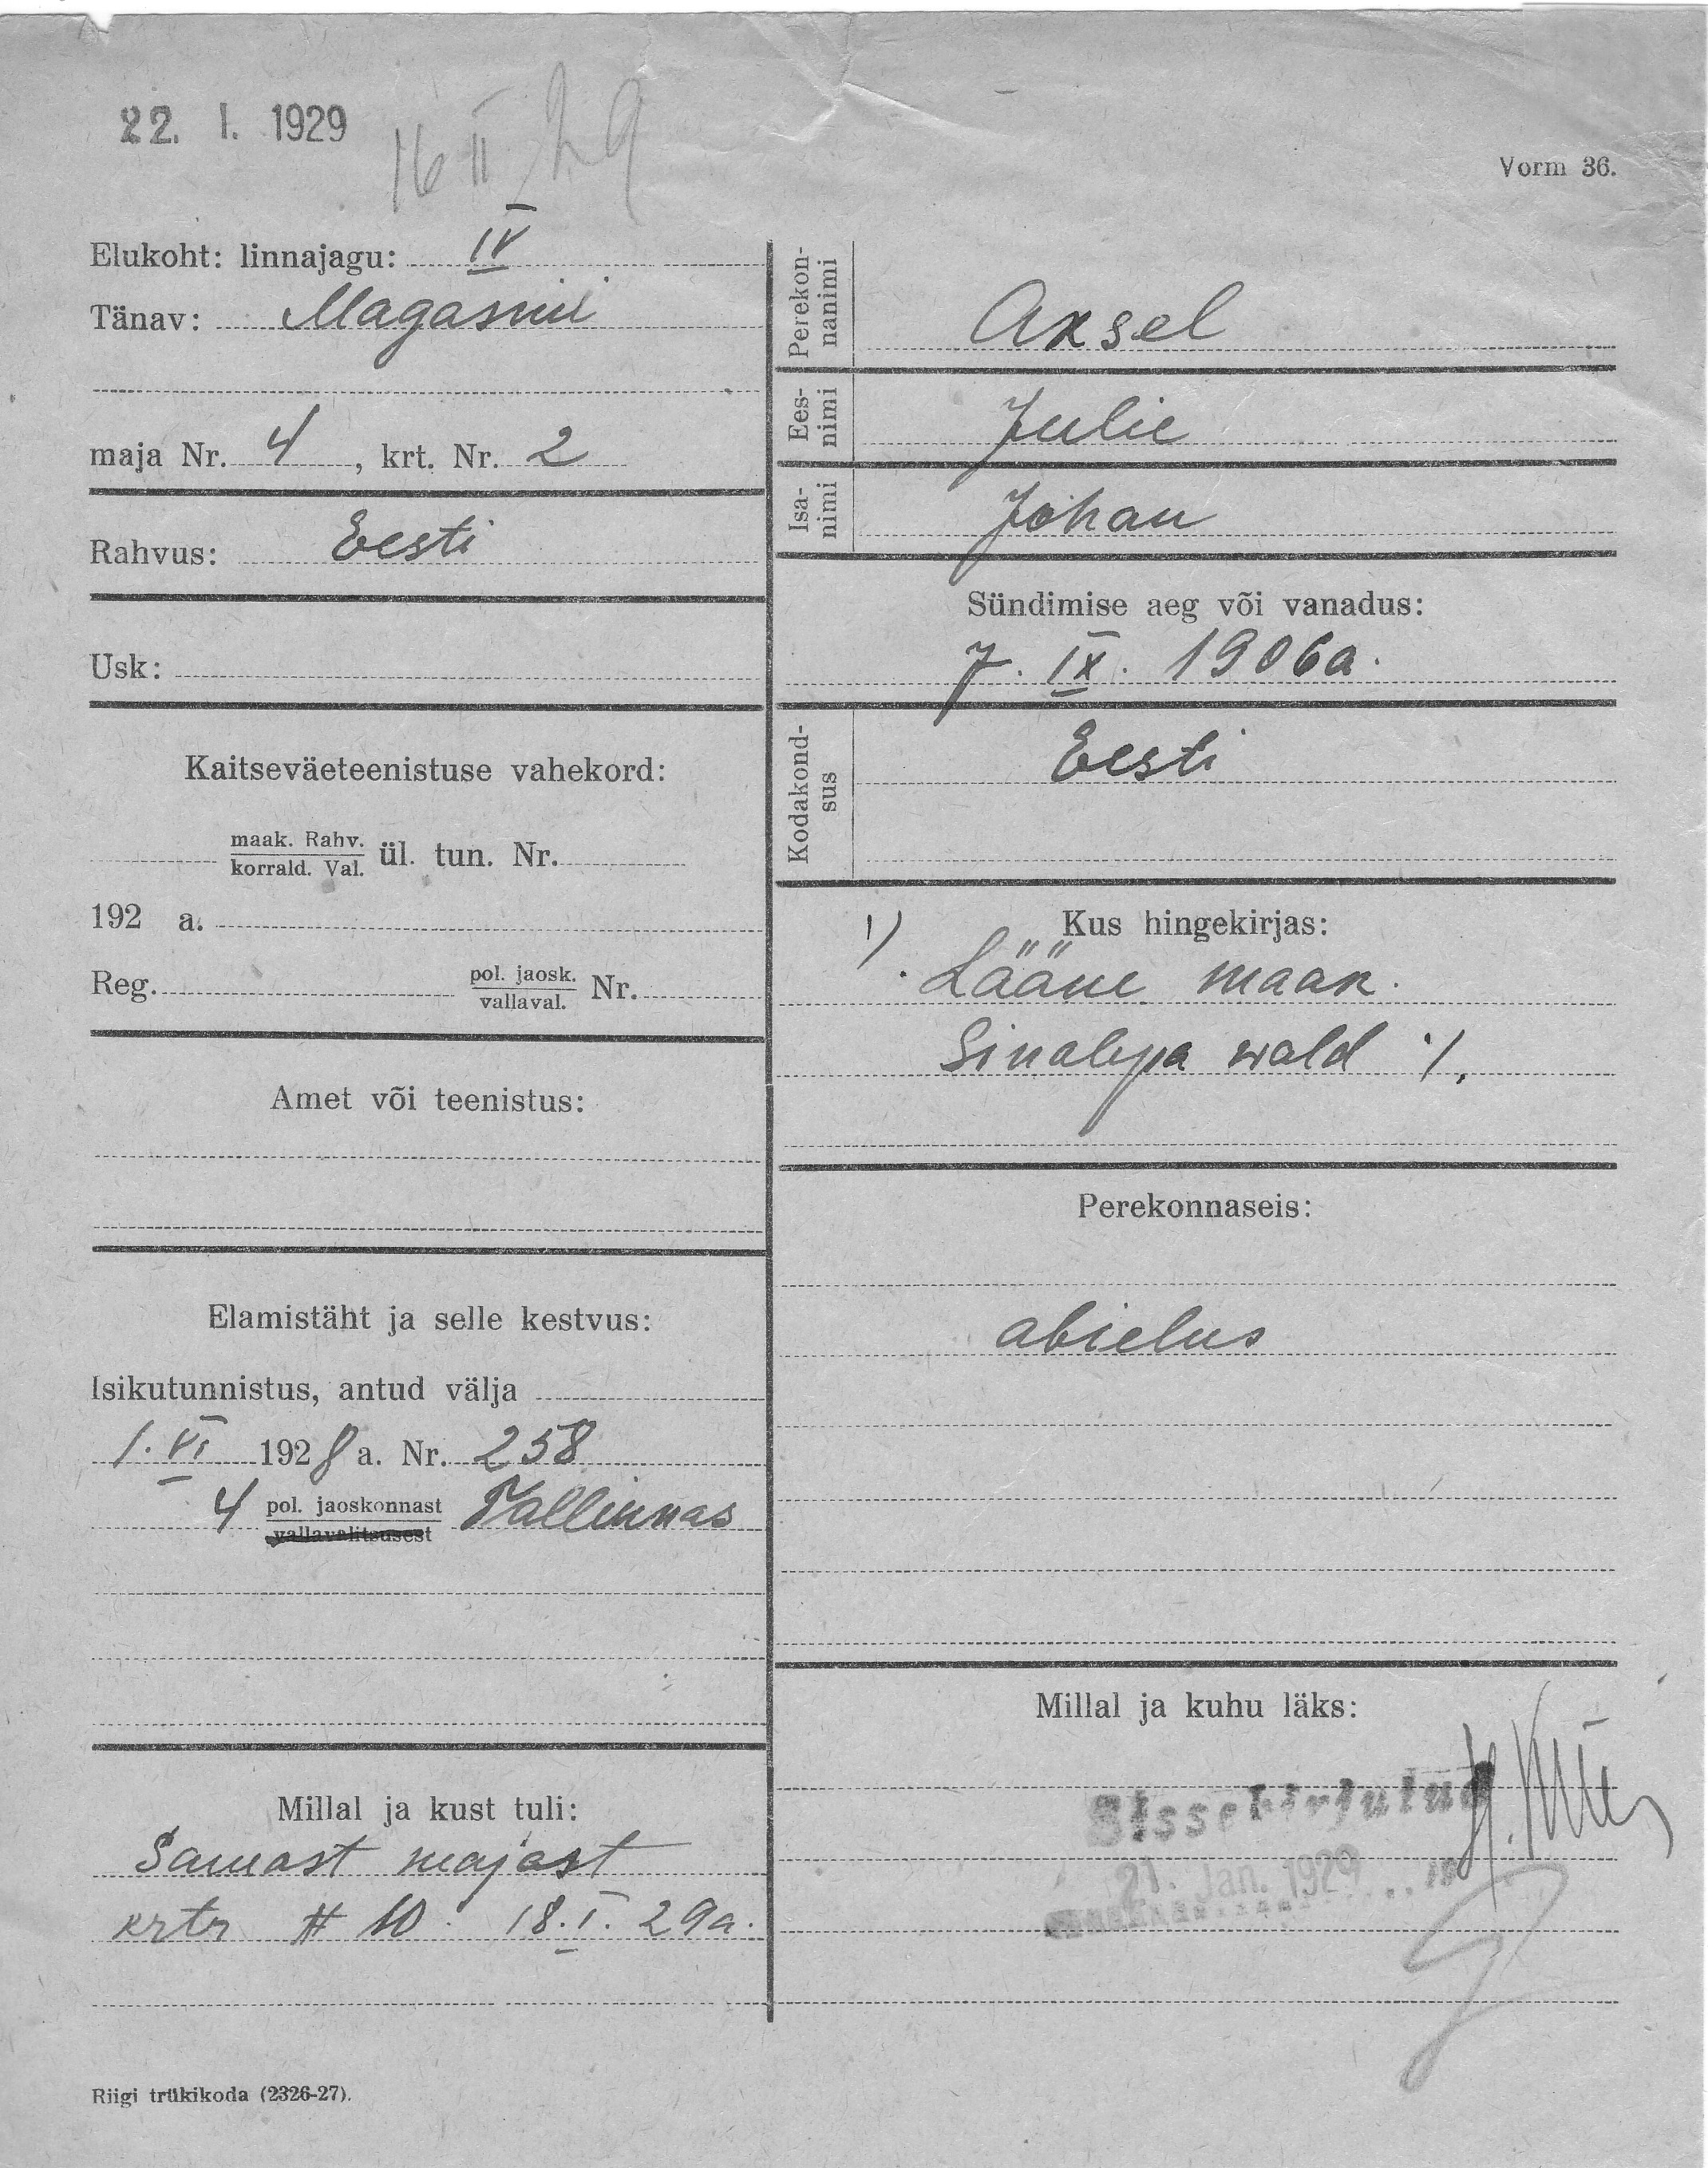 22. I. 1929
16 II 29
Vorm 36.
Elukoht: linnajagu: IV
Tänav: Magasini
maja Nr. 4, krt. Nr. 2
Rahvus: Eesti
Usk:
Kaitseväeteenistuse vahekord:
maak. Rahv.
korrald. Val.
ül. tun. Nr.
192 a.
Reg.
pol. jaosk.
vallaval.
Nr.
Amet või teenistus:
Elamistäht ja selle kestvus:
Isikutunnistus, antud välja
1. VI 1928 a. Nr. 258
4 pol. jaoskonnast Tallinnas
vallavalitsusest
Millal ja kust tuli:
Samast majast
krtr # 10. 18. I. 29a.
Riigi trükikoda (2326-27).
Perekon-
nanimi
Aksel
Ees-
nimi
Julie
Isa-
nimi
Johan
Sündimise aeg või vanadus:
7. IX. 1906a.
Kodakond-
sus
Eesti
Kus hingekirjas:
Lääne maak.
Sinalepa wald
Perekonnaseis:
abielus
Millal ja kuhu läks:
Sissekirjutud
21. Jan. 1929